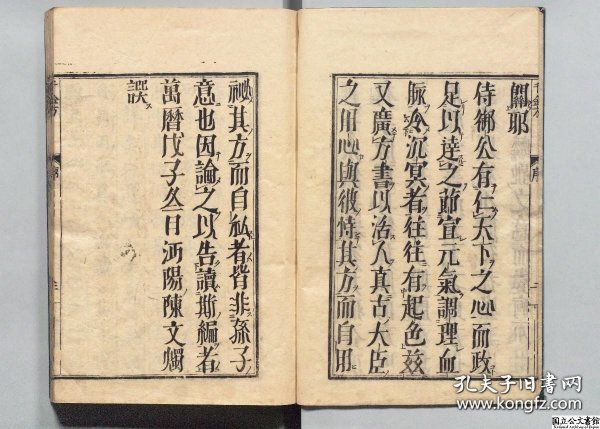 關耶
侍御公有仁天下之心而政
足以達之節宣元氣調理血
脈令沉冥者往往有起色茲
又廣方書以活人真古大臣
之用心與彼恃其方而自用
祕其方而自私者皆非孫子
意也因論之以告讀斯編者
萬曆戊子冬日沔陽陳文燭
譔
序
千金方
序
孔夫子旧书网
www.kongfz.com
国立公文書館
National Archives of Japan